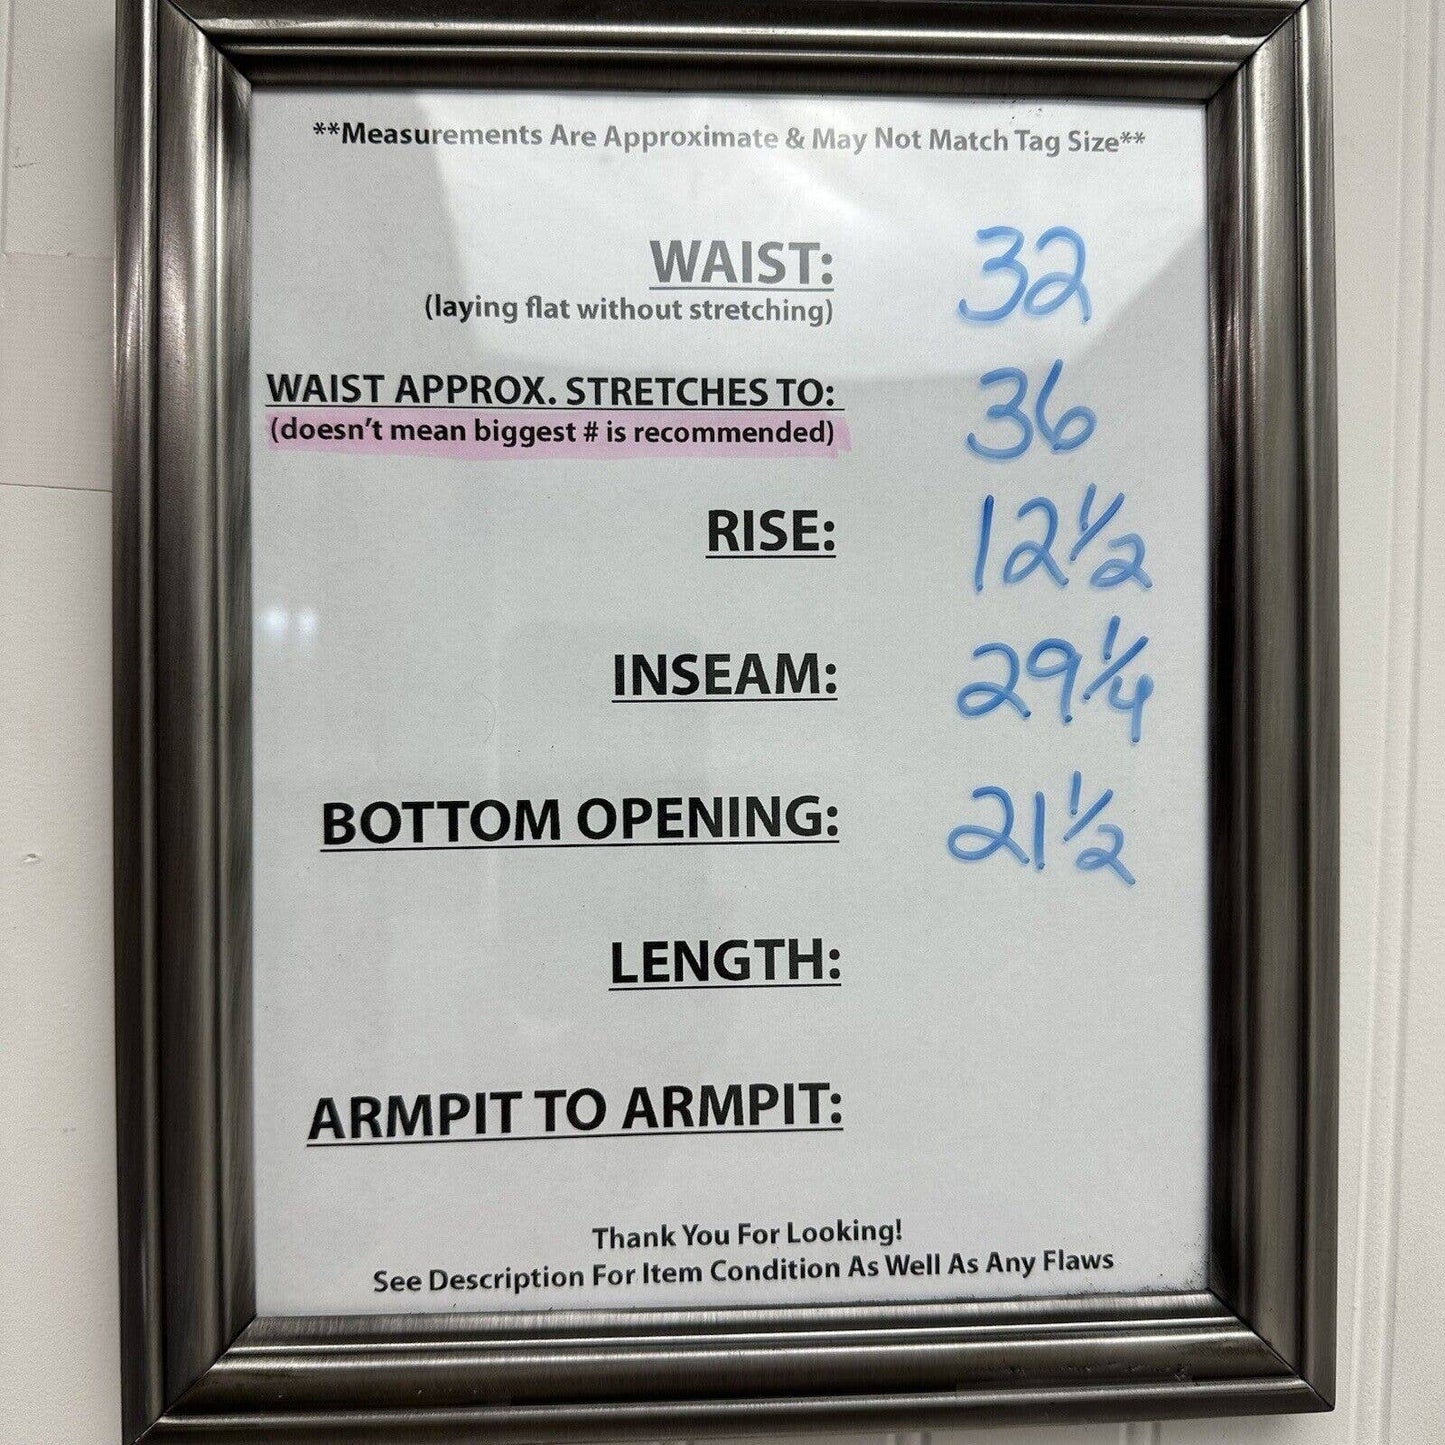 **Measurements Are Approximate & May Not Match Tag Size**
WAIST: 32
(laying flat without stretching)
WAIST APPROX. STRETCHES TO: 36
(doesn't mean biggest # is recommended)
RISE: 12 1/2
INSEAM: 29 1/4
BOTTOM OPENING: 21 1/2
LENGTH:
ARMPIT TO ARMPIT:
Thank You For Looking!
See Description For Item Condition As Well As Any Flaws